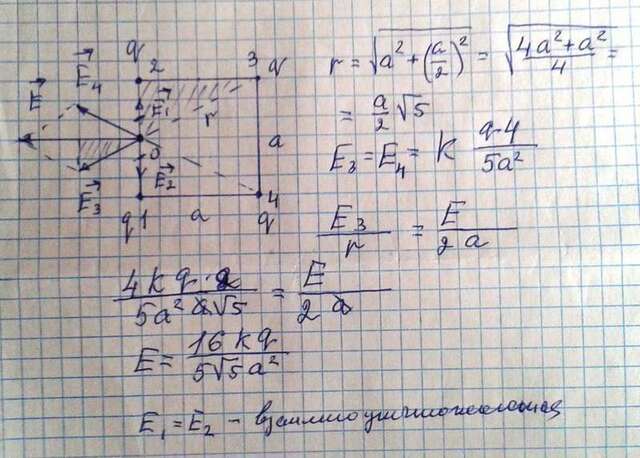 q 2 3 q
E⃗ E⃗₄ E⃗₁ r
0 a
E⃗₃ E⃗₂
q 1 a 4 q
r = √(a² + (a/2)²) = √((4a² + a²)/4) =
= a/2 √5
E₃ = E₄ = k q·4/5a²
E₃/r = E/2a
4kq·2/5a² a√5 = E/2a
E = 16kq/5√5a²
E₁ = E₂ – взаимноуничтожающая